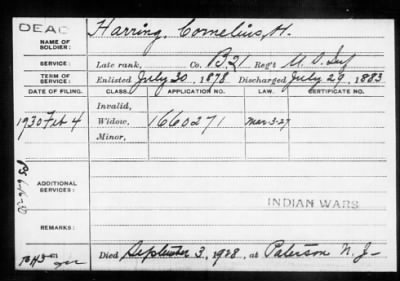 DEAD
NAME OF SOLDIER: Harring, Cornelius, H.
SERVICE: Late rank, Co. B 21 Reg't U.S. Inf
TERM OF SERVICE: Enlisted July 30, 1878 Discharged July 29, 1883
DATE OF FILING. CLASS. APPLICATION NO. LAW. CERTIFICATE NO.
Invalid,
1930 Feb 4 Widow, 1660271 Mar 3-27
Minor,
ADDITIONAL SERVICES:
INDIAN WARS
REMARKS:
Died September 3, 1928, at Paterson N. J.